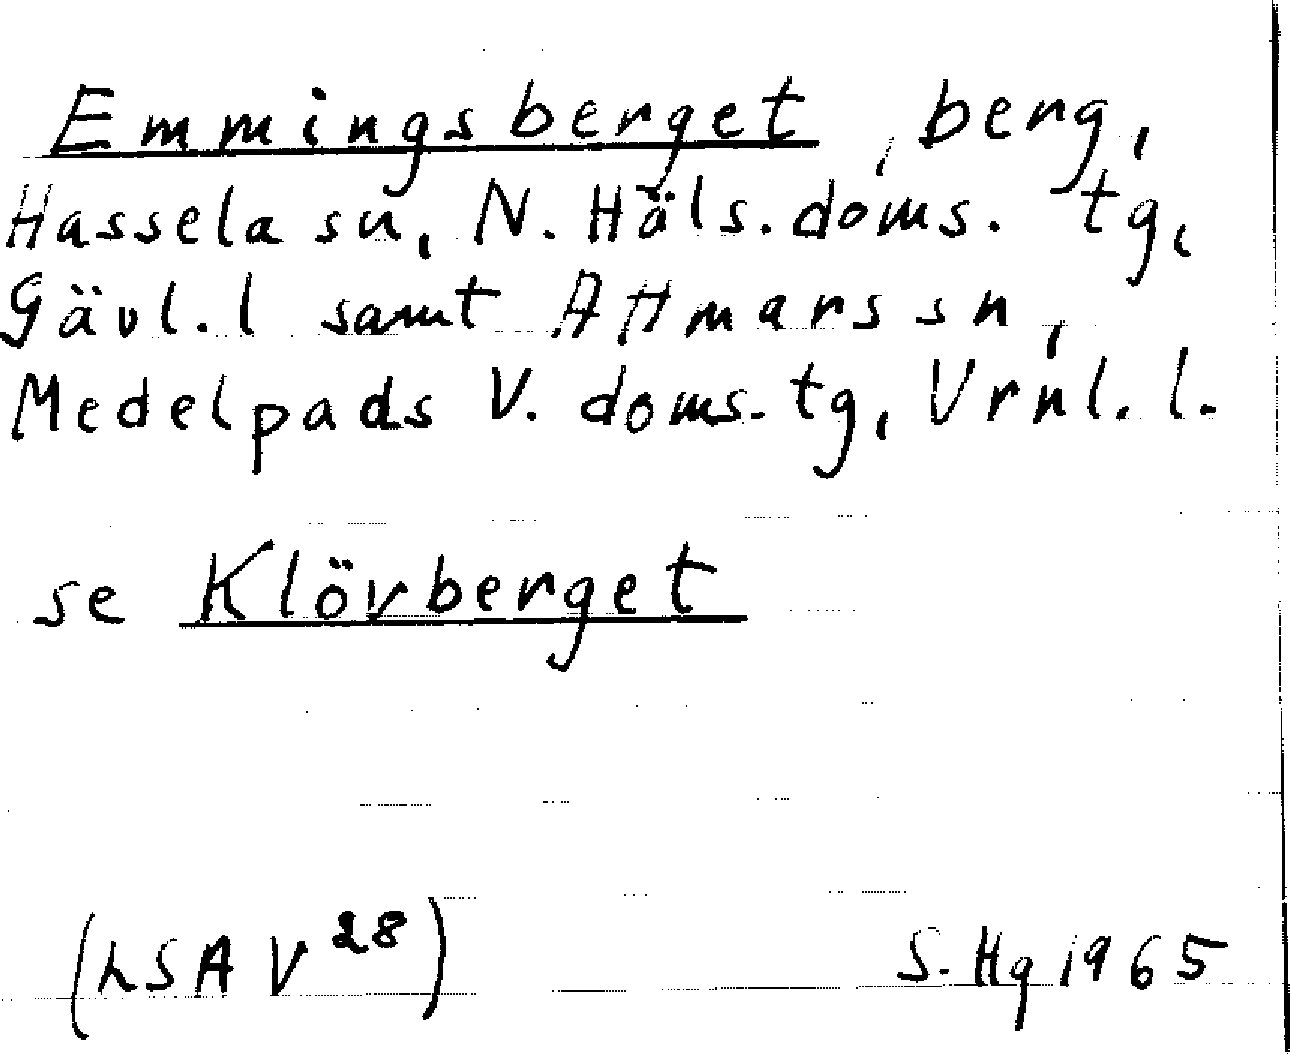 Emmingsberget, berg,
Hassela sn, N. Häls. doms. tg,
Gävl. l samt Attmars sn,
Medelpads V. doms. tg, Vrnl. l.
se Klövberget
(LSA V 28)
S. Hg 1965